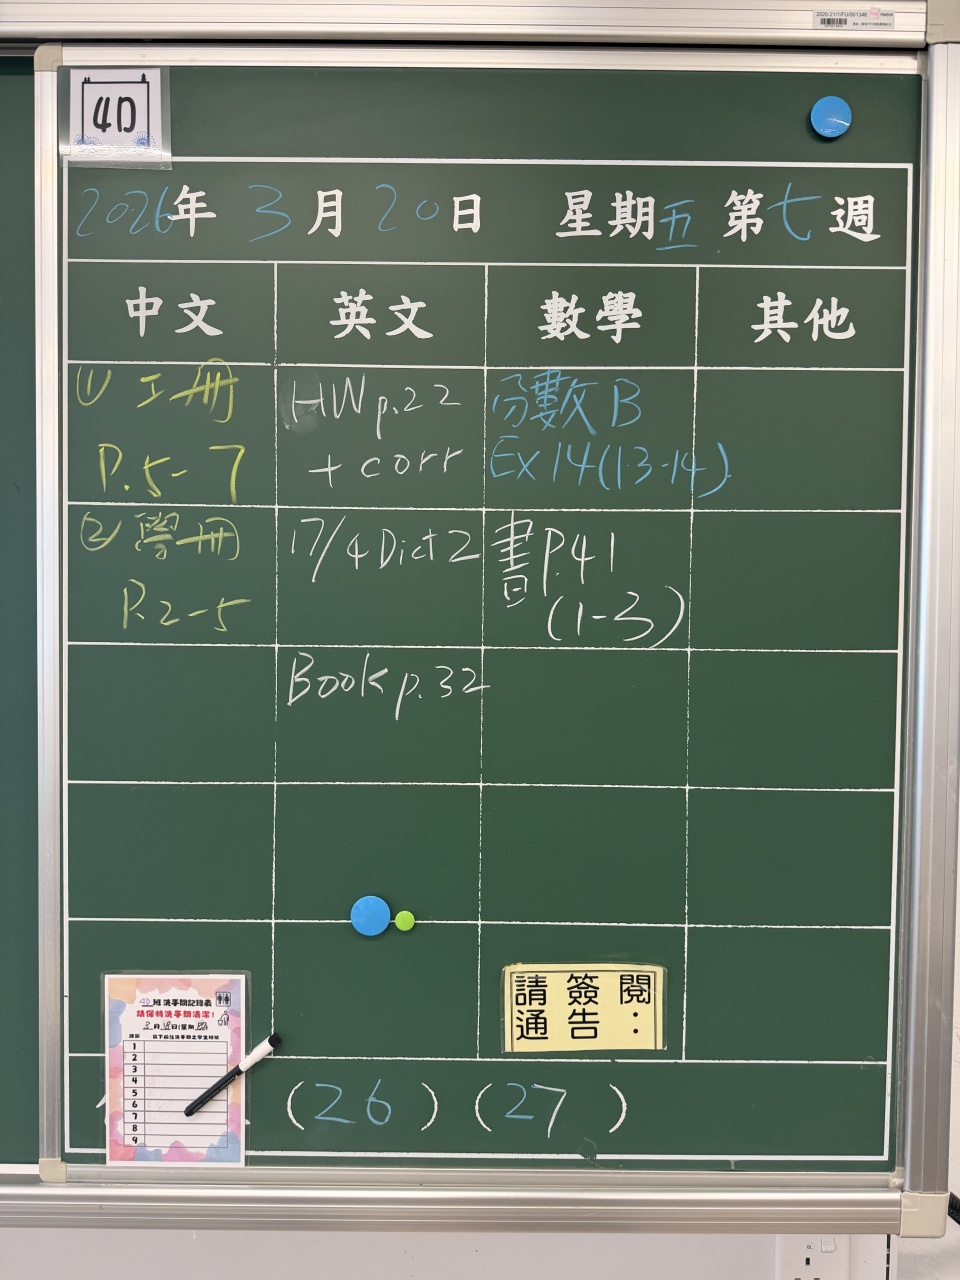 2020-21/1/FU/001346
4D
2026年 3月 20日 星期五 第七週
中文 英文 數學 其他
① 工冊
P.5-7
HW p.22
+ corr
分數B
Ex 14(13-14)
② 學冊
P.2-5
17/4 Dict 2
書 P.41
(1-3)
Book p.32
請簽閱
通告：
4D班洗手間記錄表
請保持洗手間清潔！
3月
1
2
3
4
5
6
7
8
9
(26) (27)